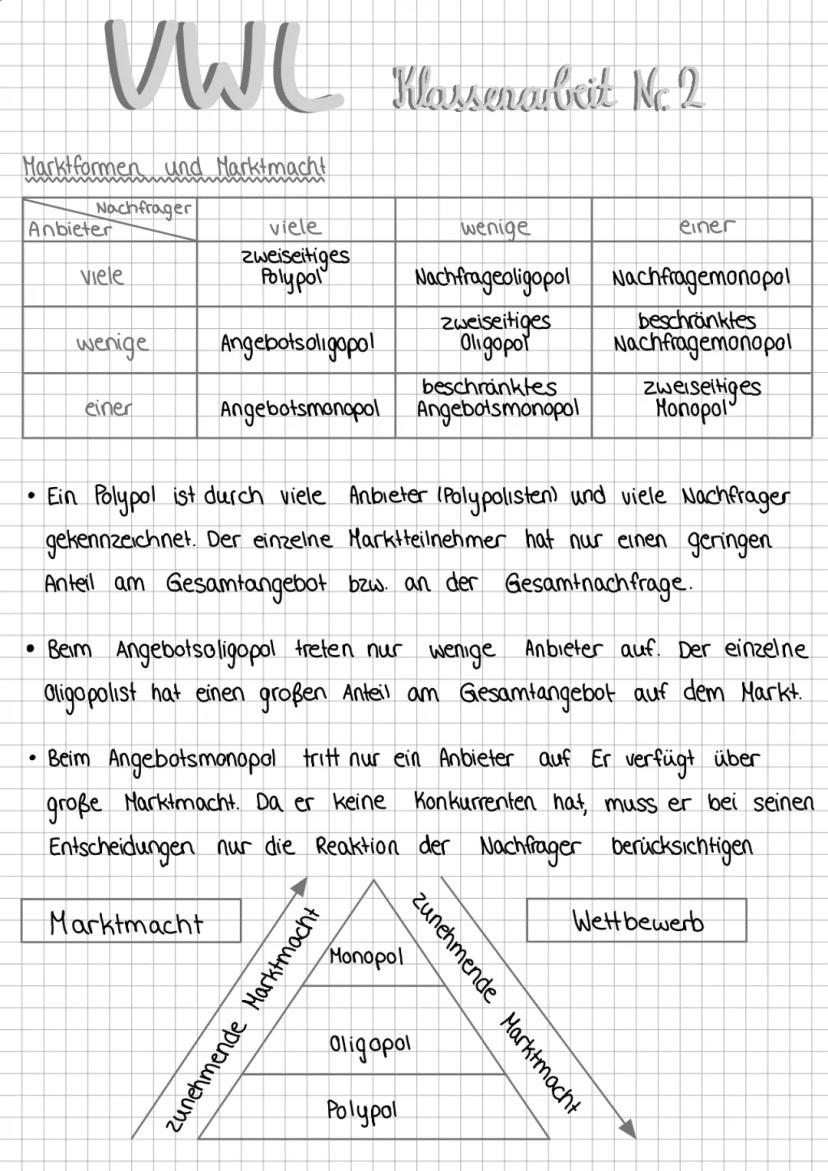 VWL Klassenarbeit Nr. 2
Marktformen und Marktmacht
Nachfrager
Anbieter viele wenige einer
viele zweiseitiges Polypol Nachfrageoligopol Nachfragemonopol
wenige Angebotsoligopol zweiseitiges Oligopol beschränktes Nachfragemonopol
einer Angebotsmonopol beschränktes Angebotsmonopol zweiseitiges Monopol
• Ein Polypol ist durch viele Anbieter (Polypolisten) und viele Nachfrager
gekennzeichnet. Der einzelne Marktteilnehmer hat nur einen geringen
Anteil am Gesamtangebot bzw. an der Gesamtnachfrage.
• Beim Angebotsoligopol treten nur wenige Anbieter auf. Der einzelne
Oligopolist hat einen großen Anteil am Gesamtangebot auf dem Markt.
• Beim Angebotsmonopol tritt nur ein Anbieter auf Er verfügt über
große Marktmacht. Da er keine Konkurrenten hat, muss er bei seinen
Entscheidungen nur die Reaktion der Nachfrager berücksichtigen
Marktmacht
zunehmende Marktmacht
Monopol
Oligopol
Polypol
zunehmende Marktmacht
Wettbewerb